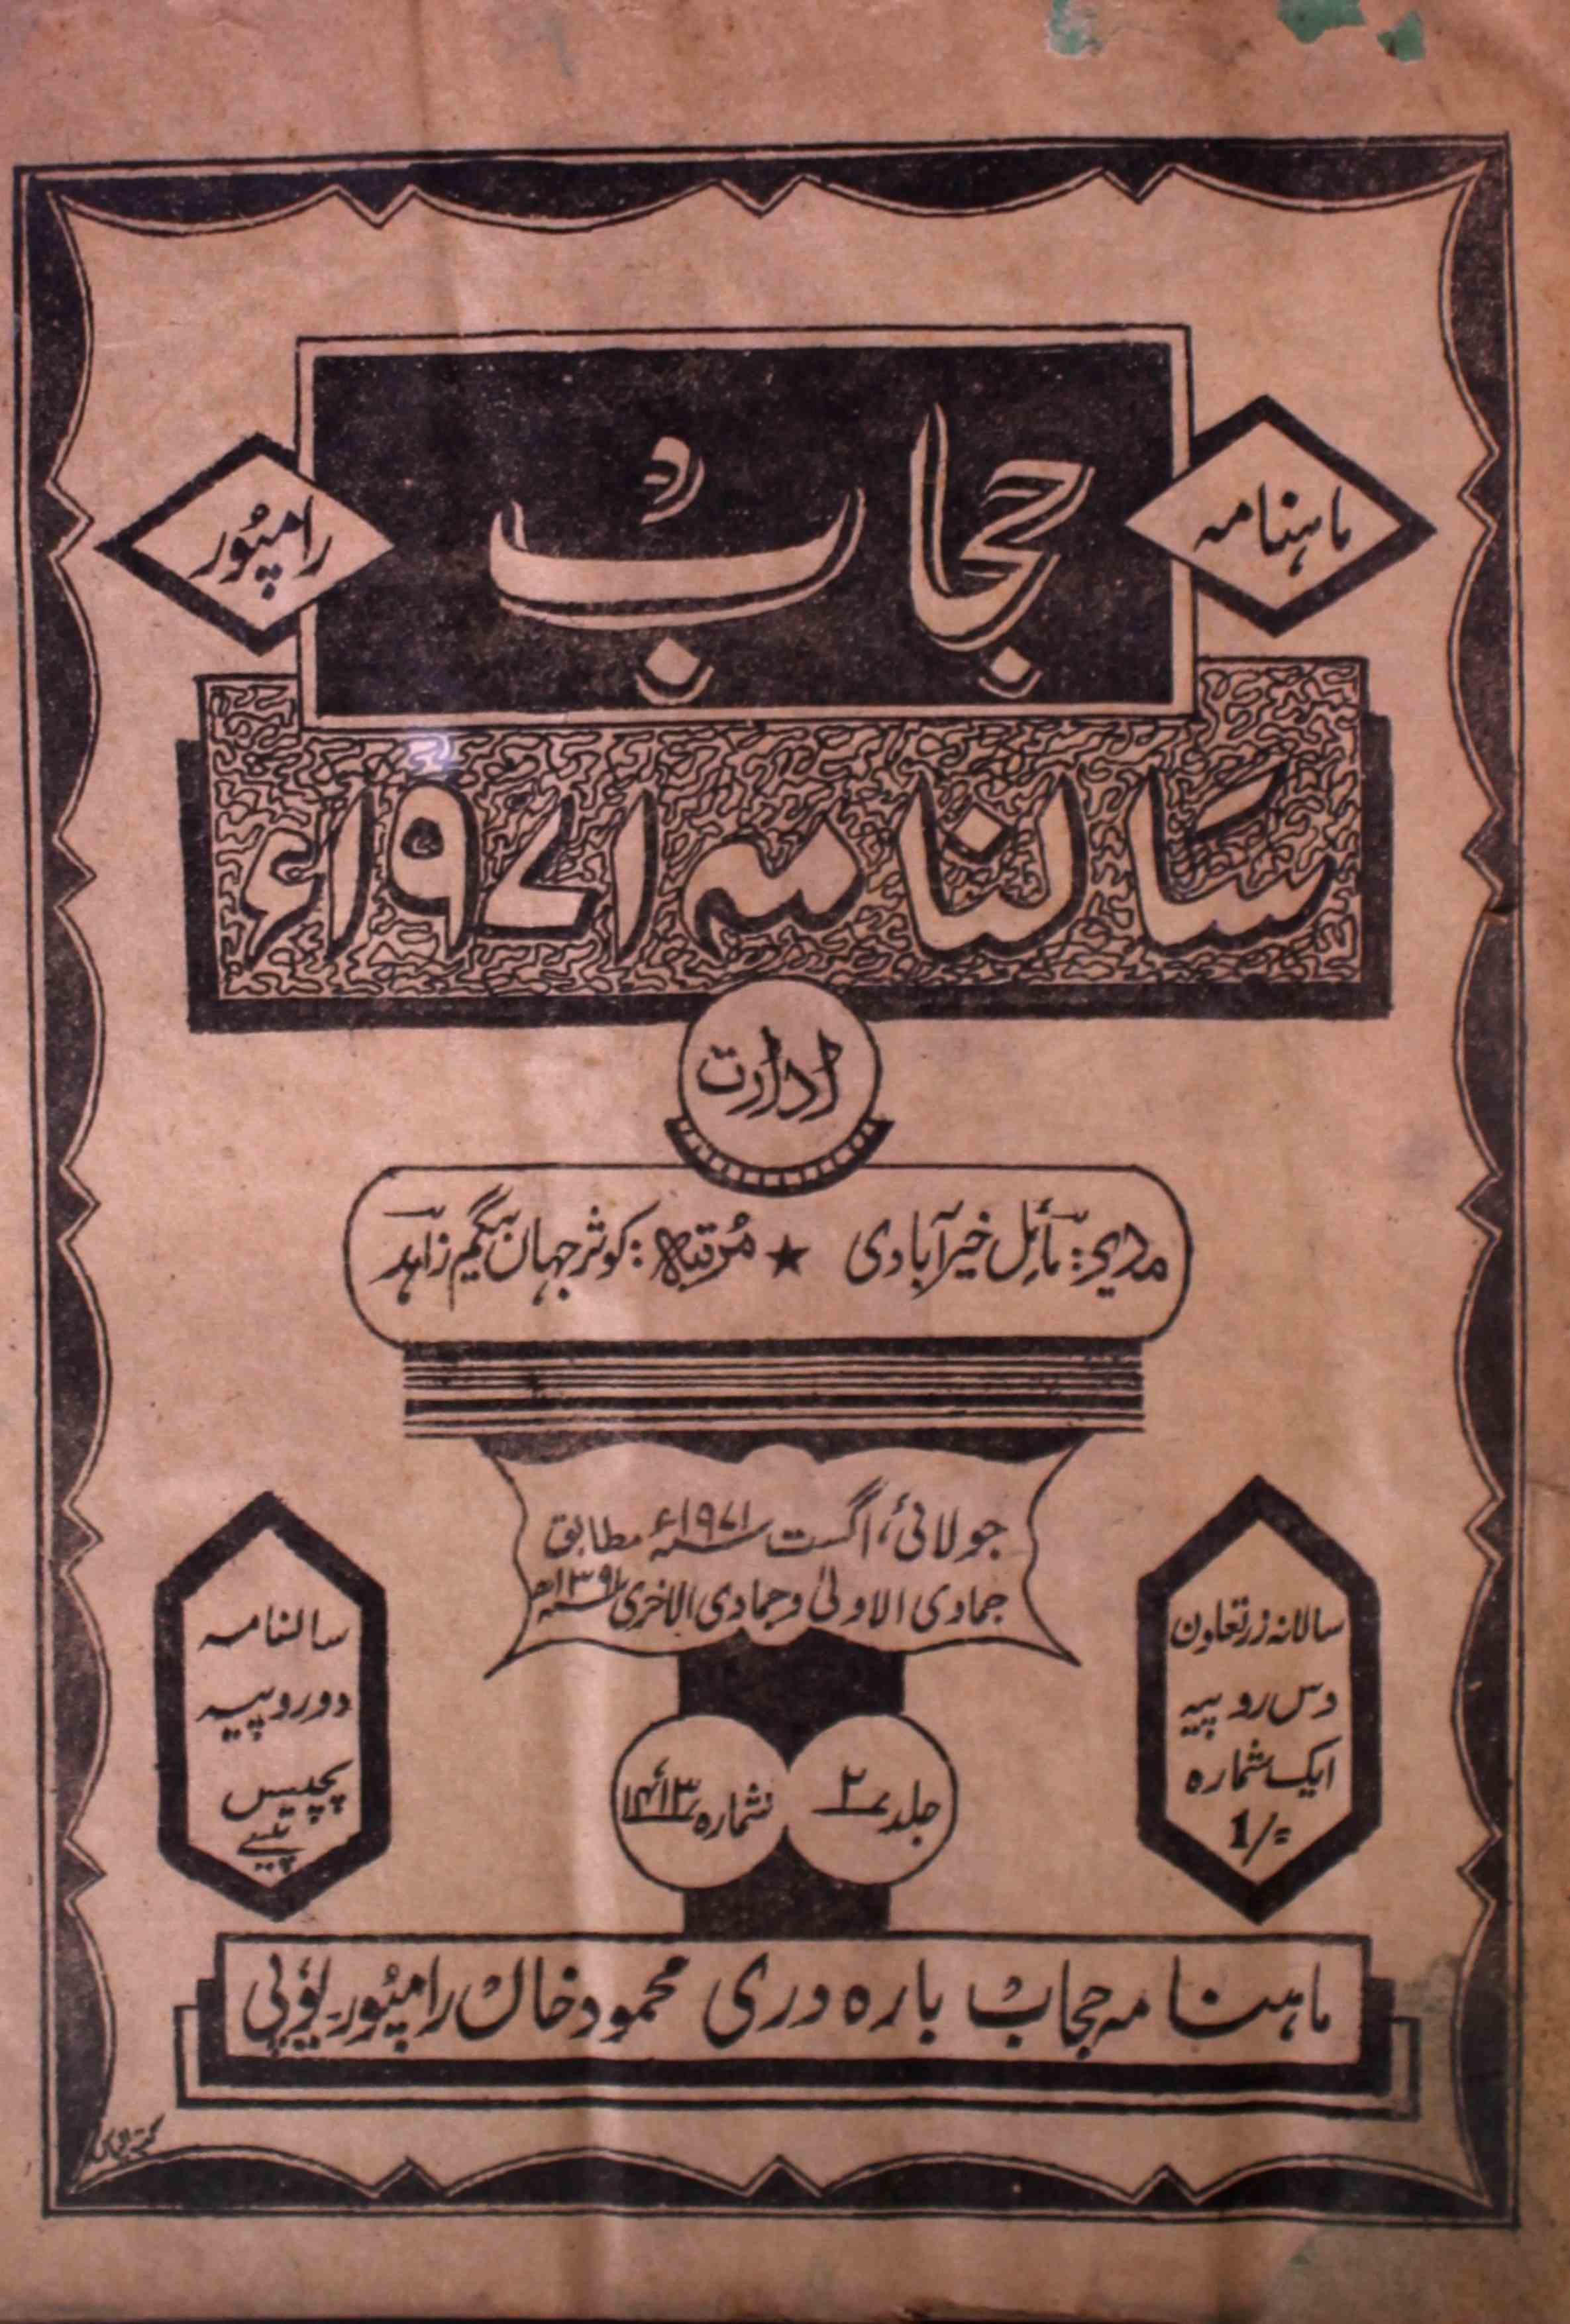 ماہنامہ
حجاب
رامپور
سالنامہ ۱۹۷۱ء
ادارت
مدیر: مائل خیرآبادی ★ مرتبہ: کوثر جہاں بیگم زاہد
جولائی، اگست ۱۹۷۱ء مطابق
جمادی الاولیٰ و جمادی الاخریٰ ۱۳۹۱ھ
سالانہ زر تعاون
دس روپیہ
ایک شمارہ
1/=
جلد ۲
شمارہ ۱۳، ۱۴
سالنامہ
دو روپیہ
پچیس
پیسے
ماہنامہ حجاب بارہ دری محمود خاں رامپور۔ یوپی